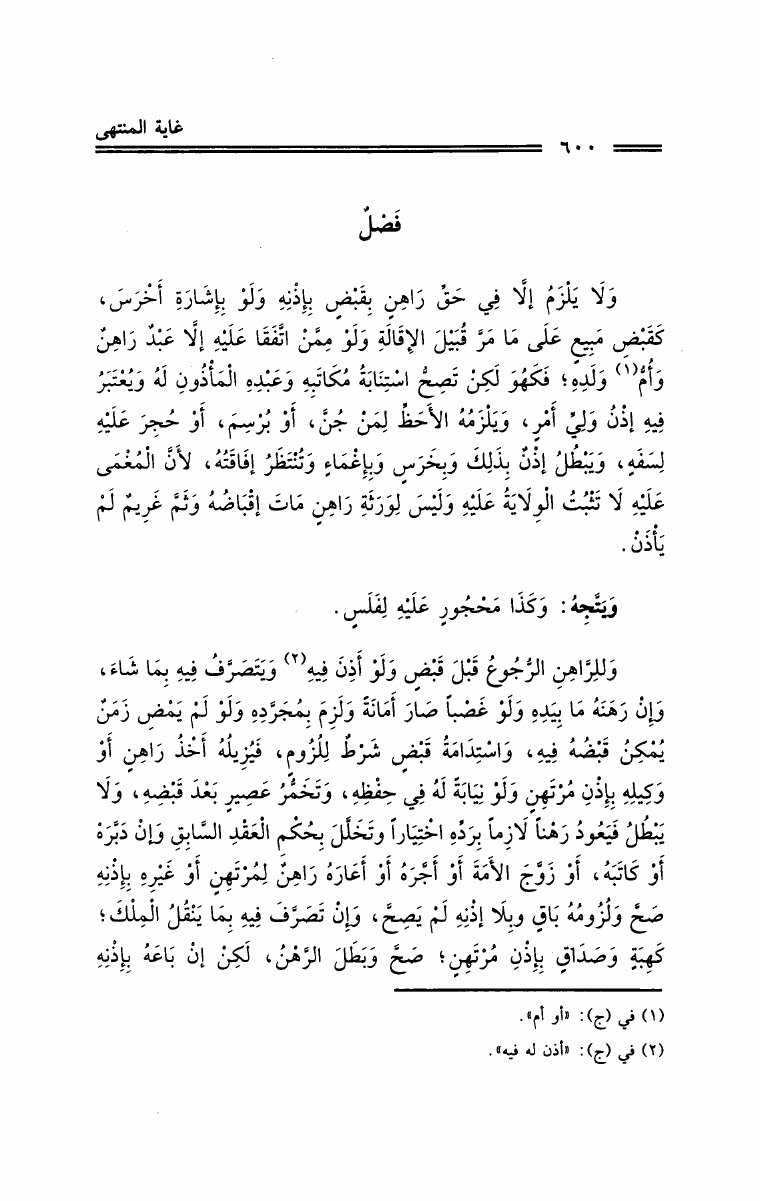 غاية المنتهى
٦٠٠
فَصْلٌ
وَلَا يَلْزَمُ إلَّا فِي حَقِّ رَاهِنٍ بِقَبْضٍ بِإِذْنِهِ وَلَوْ بِإِشَارَةِ أَخْرَسَ،
كَقَبْضِ مَبِيعٍ عَلَى مَا مَرَّ قُبَيْلَ الإِقَالَةِ وَلَوْ مِمَّنْ اتَّفَقَا عَلَيْهِ إلَّا عَبْدٌ رَاهِنٌ
وَأُمُّ(١) وَلَدِهِ؛ فَكَهُوَ لَكِنْ تَصِحُّ اسْتِنَابَةُ مُكَاتَبِهِ وَعَبْدِهِ المَأْذُونِ لَهُ وَيُعْتَبَرُ
فِيهِ إذْنُ وَلِيِّ أَمْرٍ، وَيَلْزَمُهُ الأَحَظُّ لِمَنْ جُنَّ، أَوْ بُرْسِمَ، أَوْ حُجِرَ عَلَيْهِ
لِسَفَهٍ، وَيَبْطُلُ إذْنٌ بِذَلِكَ وَبِخَرَسٍ وَبِإِغْمَاءٍ وَتُنْتَظَرُ إفَاقَتُهُ، لأَنَّ الْمُغْمَى
عَلَيْهِ لَا تَثْبُتُ الْوِلَايَةُ عَلَيْهِ وَلَيْسَ لِوَرَثَةِ رَاهِنٍ مَاتَ إقْبَاضُهُ وَثَمَّ غَرِيمٌ لَمْ
يَأْذَنْ.
وَيَتَّجِهُ: وَكَذَا مَحْجُورٍ عَلَيْهِ لِفَلَسٍ.
وَلِلرَّاهِنِ الرُّجُوعُ قَبْلَ قَبْضٍ وَلَوْ أَذِنَ فِيهِ(٢) وَيَتَصَرَّفُ فِيهِ بِمَا شَاءَ،
وَإِنْ رَهَنَهُ مَا بِيَدِهِ وَلَوْ غَصْباً صَارَ أَمَانَةً وَلَزِمَ بِمُجَرَّدِهِ وَلَوْ لَمْ يَمْضِ زَمَنٌ
يُمْكِنُ قَبْضُهُ فِيهِ، وَاسْتِدَامَةُ قَبْضٍ شَرْطٌ لِلُزُومٍ، فَيُزِيلُهُ أَخْذُ رَاهِنٍ أَوْ
وَكِيلِهِ بِإِذْنِ مُرْتَهِنٍ وَلَوْ نِيَابَةً لَهُ فِي حِفْظِهِ، وَتَخَمُّرُ عَصِيرٍ بَعْدَ قَبْضِهِ، وَلَا
يَبْطُلُ فَيَعُودُ رَهْناً لَازِماً بِرَدِّهِ اخْتِيَاراً وتَخَلَّلَ بِحُكْمِ الْعَقْدِ السَّابِقِ وَإنْ دَبَّرَهُ
أَوْ كَاتَبَهُ، أَوْ زَوَّجَ الأَمَةَ أَوْ أَجَّرَهُ أَوْ أَعَارَهُ رَاهِنٌ لِمُرْتَهِنٍ أَوْ غَيْرِهِ بِإِذْنِهِ
صَحَّ وَلُزُومُهُ بَاقٍ وبِلَا إذْنِهِ لَمْ يَصِحَّ، وَإنْ تَصَرَّفَ فِيهِ بِمَا يَنْقُلُ الْمِلْكَ؛
كَهِبَةٍ وَصَدَاقٍ بِإِذْنِ مُرْتَهِنٍ؛ صَحَّ وَبَطَلَ الرَّهْنُ، لَكِنْ إنْ بَاعَهُ بِإِذْنِهِ
(١) في (ج): «أو أم».
(٢) في (ج): «أذن له فيه».